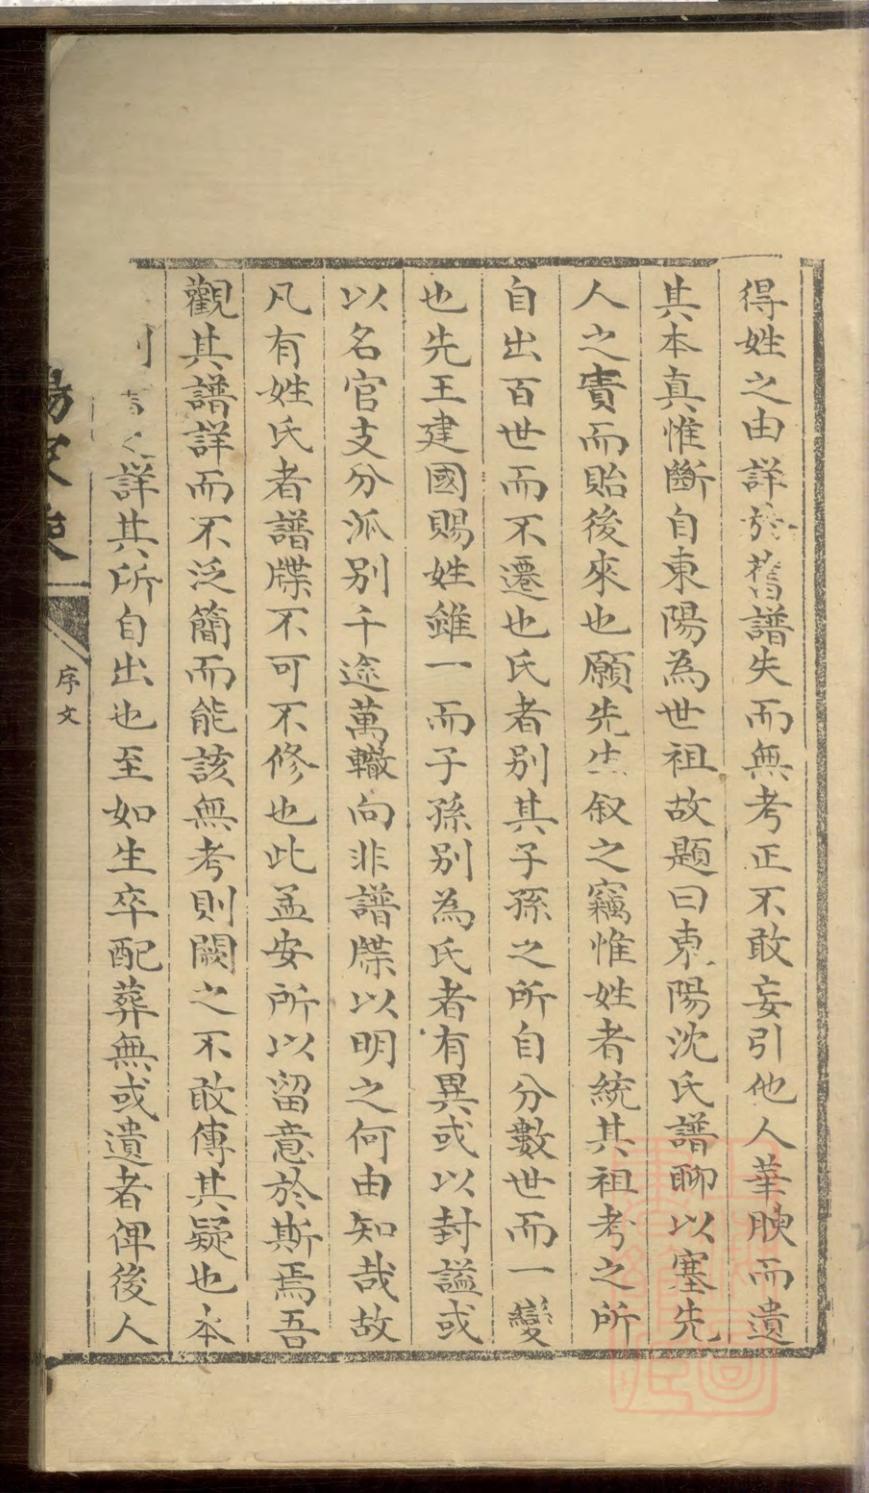 得姓之由詳於舊譜失而無考正不敢妄引他人華腴而遺
其本真惟斷自東陽為世祖故題曰東陽沈氏譜聊以塞先
人之責而貽後來也願先生叙之竊惟姓者統其祖考之所
自出百世而不遷也氏者別其子孫之所自分數世而一變
也先王建國賜姓雖一而子孫別為氏者有異或以封謚或
以名官支分派別千途萬轍向非譜牒以明之何由知哉故
凡有姓氏者譜牒不可不修也此孟安所以留意於斯焉吾
觀其譜詳而不泛簡而能該無考則闕之不敢傳其疑也本
詳其所自出也至如生卒配葬無或遺者俾後人
序文